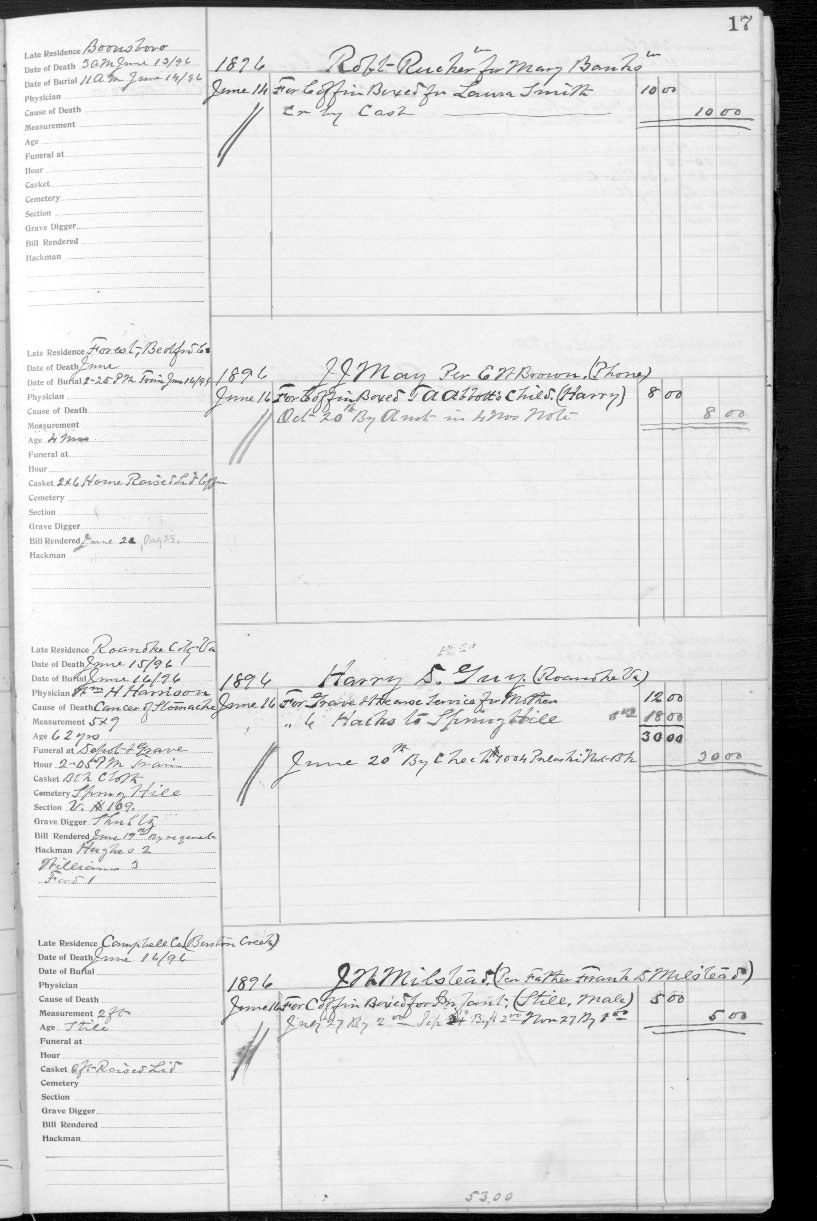 17
Late Residence Boonsboro
Date of Death 3 a m June 13/96
Date of Burial 11 a m June 14/96
Physician
Cause of Death
Measurement
Age
Funeral at
Hour
Casket
Cemetery
Section
Grave Digger
Bill Rendered
Hackman
1896 Robt Rucker for Mary Banks
June 14 For Coffin Boxed for Laura Smith 10 00
Cr by Cash 10 00
Late Residence Forest, Bedford Co
Date of Death June
Date of Burial 2-25 PM Train June 16/96
Physician
Cause of Death
Measurement
Age 4 Mos
Funeral at
Hour
Casket 2x6 Home Raised Lid Coffin
Cemetery
Section
Grave Digger
Bill Rendered June 22, Aug 28.
Hackman
1896 J J May Per E W Brown. (Phone)
June 16 For Coffin Boxed T A Abbott's Child. (Harry) 8 00
Oct 20th By Amt in 4 Mos Note 8 00
Late Residence Roanoke City Va
Date of Death June 15/96
Date of Burial June 16/96
Physician Wm H Harrison
Cause of Death Cancer of Stomache
Measurement 5x9
Age 62 yrs
Funeral at Depot & Grave
Hour 2-05 PM Train
Casket Blk Cloth
Cemetery Spring Hill
Section V. # 169.
Grave Digger Shultz
Bill Rendered June 19th By request
Hackman Hughes 2
Williams 3
Ford 1
1896 Harry S. Guy. (Roanoke Va)
June 16 For Grave & Hearse Service for Mother 12 00
" 6 Hacks to Spring Hill 18 00
30 00
June 20th By Check # 1004 Pulaski Nat Bk 30 00
Late Residence Campbell Co (Beaver Creek)
Date of Death June 16/96
Date of Burial
Physician
Cause of Death
Measurement 2 ft
Age Still
Funeral at
Hour
Casket 2 ft Raised Lid
Cemetery
Section
Grave Digger
Bill Rendered
Hackman
1896 J W Milstead. (Per Father Frank D Milstead)
June 16 For Coffin Boxed for Infant. (Still, Male) 5 00
July 27 By 2 00 Sep By 2 00 Nov 27 By 1 00 5 00
53.00